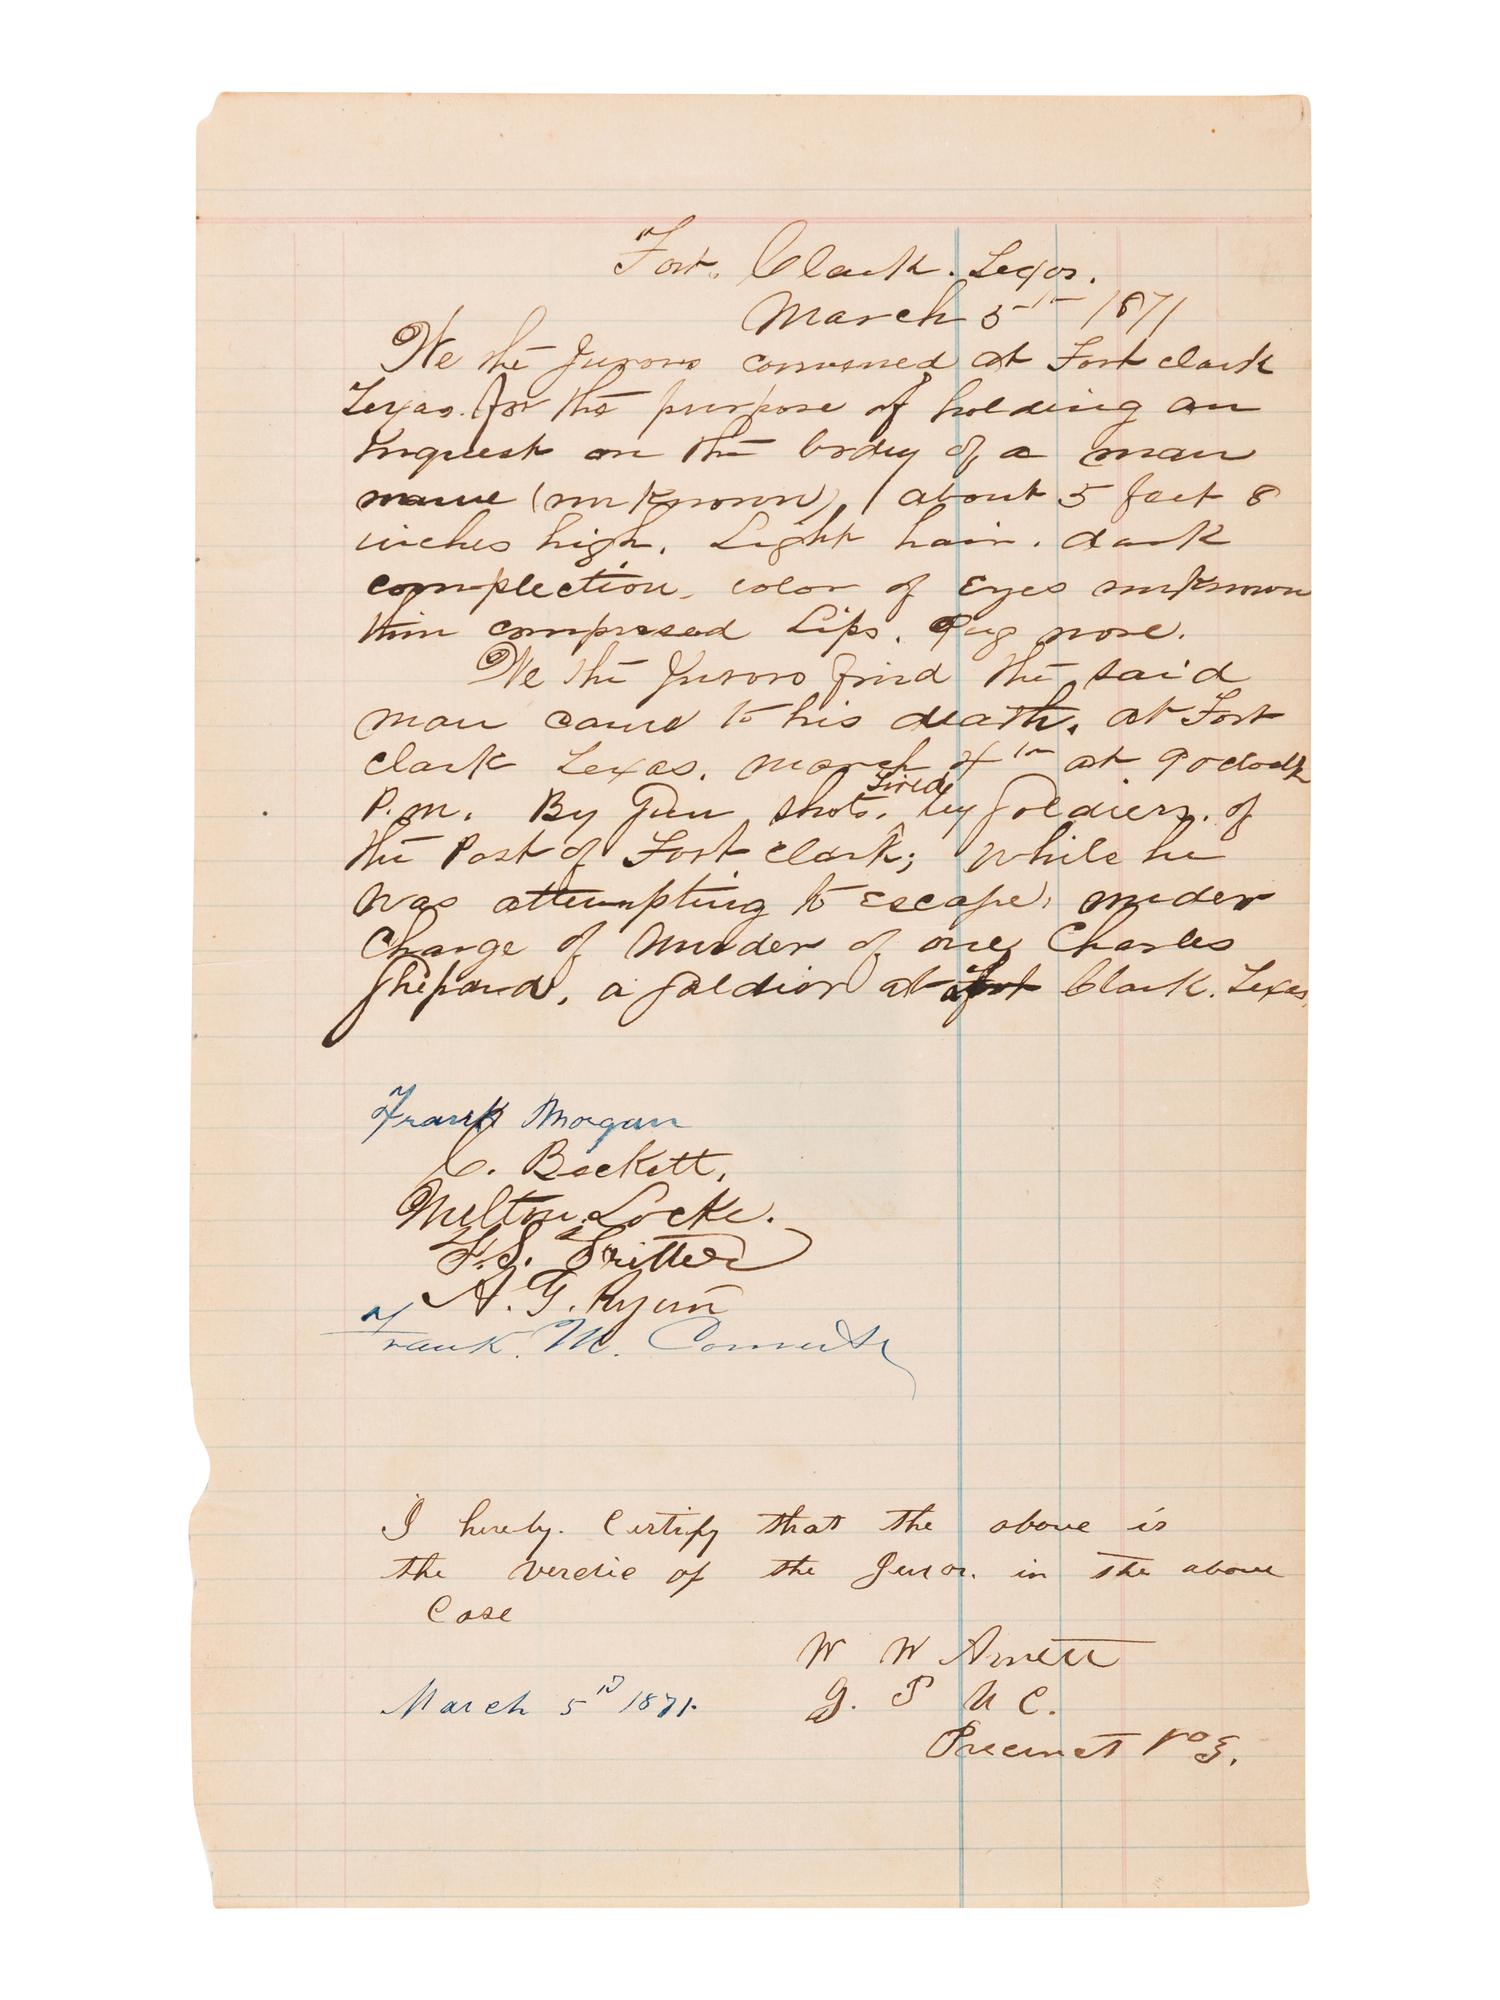 Fort. Clark. Texas.
March 5th 1871
We the Jurors convened at Fort Clark
Texas. for the purpose of holding an
Inquest on the body of a man
name (unknown) about 5 feet 8
inches high. Light hair. dark
complection. color of Eyes unknown
thin compressed Lips. Pug nose.
We the Jurors find the said
man came to his death. at Fort
Clark Texas. March 4th at 9 oclock
P.M. By Gun shots. fired by Soldiers. of
the Post of Fort Clark; while he
was attempting to escape, under
Charge of Murder of one Charles
Shepard, a Soldior at Fort Clark. Texas.
Frank Morgan
C. Beckett,
Milton Locke.
F.S. Fritter
A. G. Ryan
Frank. M.
I hereby. Certify that the above is
the verdic of the Juror. in the above
Case
W W Arnett
J. P U C.
March 5th 1871.
Precinct No 3.